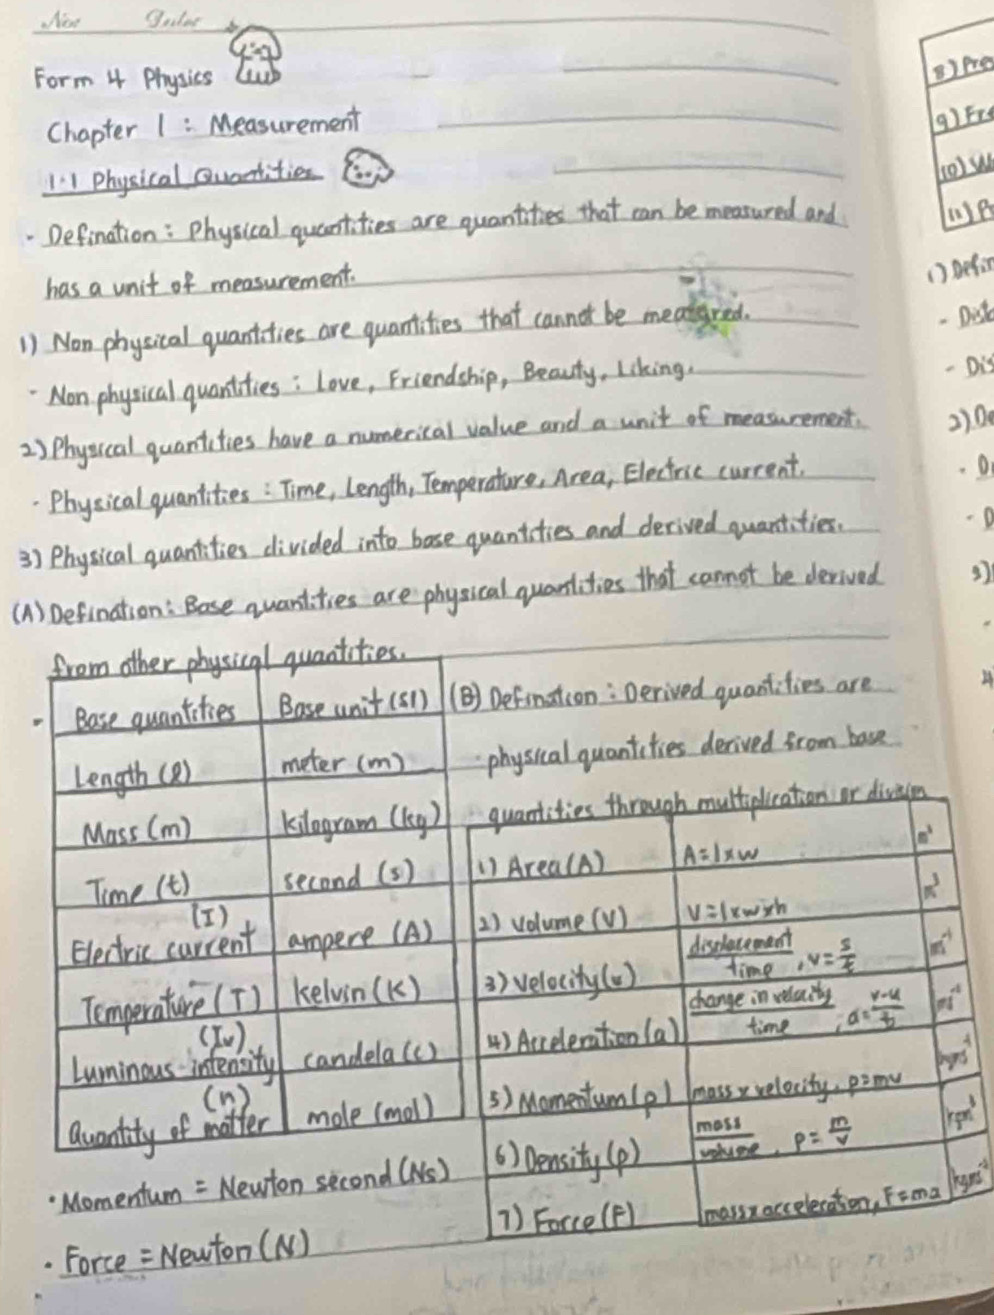 Form 4 Physics
Chapter 1 : Measurement
1.1 Physical Quantities
- Defination : Physical quantities are quantities that can be measured and
has a unit of measurement.
1) Non physical quantities are quantities that cannot be measured.
- Non physical quantities : Love, Friendship, Beauty, Liking.
2) Physical quantities have a numerical value and a unit of measurement.
- Physical quantities : Time, Length, Temperature, Area, Electric current.
3) Physical quantities divided into base quantities and derived quantities.
(A) Defination : Base quantities are physical quantities that cannot be derived
from other physical quantities.
- Base quantities Base unit (SI)
Length (l) meter (m)
Mass (m) kilogram (kg)
Time (t) second (s)
Electric current (I) ampere (A)
Temperature (T) kelvin (K)
Luminous intensity (Iv) candela (c)
Quantity of matter (n) mole (mol)
(B) Defination : Derived quantities are
physical quantities derived from base
quantities through multiplication or division
1) Area (A) A = l x w m²
2) Volume (V) V = l x w x h m³
3) Velocity (v) displacement / time , v = s/t ms⁻¹
4) Acceleration (a) change in velocity / time , a = v-u / t ms⁻²
5) Momentum (p) mass x velocity, p = mv kgms⁻¹
6) Density (ρ) mass / volume , ρ = m/v kgm⁻³
7) Force (F) mass x acceleration, F = ma kgms⁻²
• Momentum = Newton second (Ns)
• Force = Newton (N)
8)
9)
10)
11)
1)
-
-
2)
-
-
3)
-
4